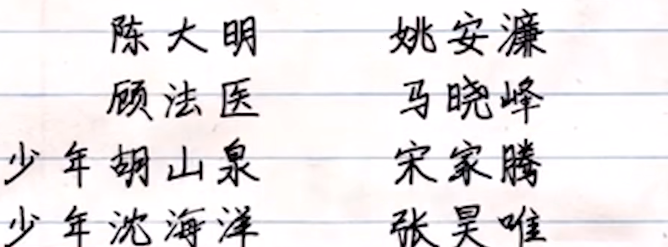 陈大明 姚安濂
顾法医 马晓峰
少年胡山泉 宋家腾
少年沈海洋 张昊唯